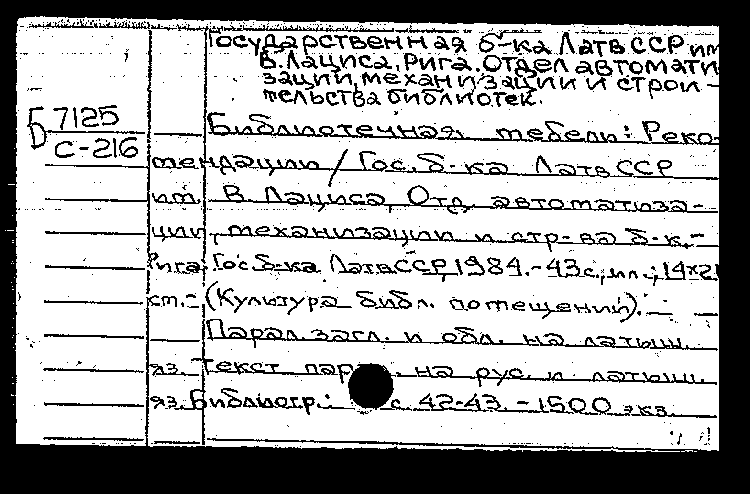 Государственная б-ка Латв ССР им.
В. Лациса, Рига. Отдел автомати
зации, механизации и строи-
тельства библиотек.
Б 7125
С-216
Библиотечная мебель: Реко-
мендации / Гос. б-ка Латв ССР
им. В. Лациса, Отд. автоматиза-
ции, механизации и стр-ва б-к.-
Рига: Гос б-ка Латв ССР, 1984.-43 с., ил.; 14×21
см.- (Культура библ. помещений). —
Парал. загл. и обл. на латыш.
яз. Текст парал. на рус. и латыш.
яз. Библиогр.: с. 42-43. - 1500 экз.